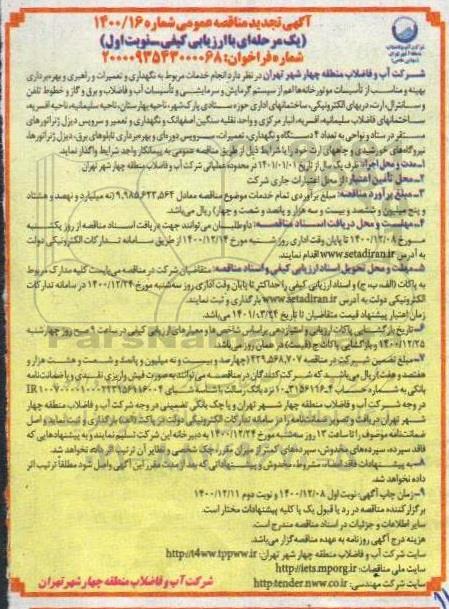 آگهی تجدید مناقصه عمومی شماره ۱۴۰۰/۱۶
(یک مرحله‌ای با ارزیابی کیفی-نوبت اول)
شماره فراخوان: ۲۰۰۰۰۹۳۵۴۳۰۰۰۰۶۸
شرکت آب و فاضلاب منطقه چهار شهر تهران در نظر دارد انجام خدمات مربوط به نگهداری و تعمیرات و راهبری و بهره‌برداری
بهینه و مناسب از تأسیسات موتورخانه‌ها اعم از سیستم گرمایش و سرمایشی و تأسیسات آب و فاضلاب و برق و گاز و خطوط تلفن
و سانترال، ارت، دربهای الکترونیکی، ساختمانهای اداری حوزه ستادی پارک‌شهر، ناحیه بهارستان، ناحیه سلیمانیه، ناحیه افسریه،
ساختمانهای فاضلاب سلیمانیه، افسریه، انبار مرکزی و واحد نقلیه سنگین اصفهانک و نگهداری و تعمیر و سرویس دیزل ژنراتورهای
مستقر در ستاد و نواحی به تعداد ۴ دستگاه و نگهداری، تعمیرات، سرویس دوره‌ای و بهره‌برداری تابلوهای برق، دیزل ژنراتورها،
نیروگاه‌های خورشیدی و چاههای ارت خود را با شرایط ذیل از طریق مناقصه عمومی به پیمانکار واجد شرایط واگذار نماید.
۱-مدت و محل اجرا: ظرف یک سال از تاریخ ۱۴۰۱/۰۱/۰۱ در محدوده عملیاتی شرکت آب و فاضلاب منطقه چهار شهر تهران
۲-محل تأمین اعتبار: از محل اعتبارات جاری شرکت
۳-مبلغ برآورد مناقصه: مبلغ برآوردی تمام خدمات موضوع مناقصه معادل ۹,۹۸۵,۶۲۳,۵۶۴ (نه میلیارد و نهصد و هشتاد
و پنج میلیون و ششصد و بیست و سه هزار و پانصد و شصت و چهار) ریال می‌باشد.
۴-مهلت و محل دریافت اسناد مناقصه: داوطلبان می‌توانند جهت دریافت اسناد مناقصه از روز یکشنبه
مورخ ۱۴۰۰/۱۲/۰۸ تا پایان وقت اداری روز شنبه مورخ ۱۴۰۰/۱۲/۱۴ از طریق سامانه تدارکات الکترونیکی دولت
به آدرس www.setadiran.ir اقدام نمایند.
۵-مهلت و محل تحویل اسناد ارزیابی کیفی و اسناد مناقصه: متقاضیان شرکت در مناقصه می‌بایست کلیه مدارک مربوط
به پاکات (الف، ب، ج) و اسناد ارزیابی کیفی را حداکثر تا پایان وقت اداری روز سه‌شنبه مورخ ۱۴۰۰/۱۲/۲۴ در سامانه تدارکات
الکترونیکی دولت به آدرس www.setadiran.ir بارگذاری و ثبت نمایند.
زمان اعتبار پیشنهاد قیمت متقاضیان تا تاریخ ۱۴۰۱/۰۳/۲۴ می‌باشد.
۶-تاریخ بازگشایی پاکات ارزیابی و امتیازدهی براساس شاخص‌ها و معیارهای ارزیابی کیفی در ساعت ۹ صبح روز چهارشنبه
۱۴۰۰/۱۲/۲۵ و بازگشایی پاکات ج (قیمت) در همان روز می‌باشد.
۷-مبلغ تضمین شرکت در مناقصه ۴۲۹,۵۶۸,۷۰۷ (چهارصد و بیست و نه میلیون و پانصد و شصت و هشت هزار و
هفتصد و هفت) ریال می‌باشد که شرکت‌کنندگان در مناقصه می‌توانند به صورت فیش واریزی نقدی و یا ضمانت‌نامه
در وجه شرکت آب و فاضلاب منطقه چهار شهر تهران و یا چک بانکی تضمینی در وجه شرکت آب و فاضلاب منطقه چهار
شهر تهران دریافت و تصویر ضمانت‌نامه را در سامانه تدارکات الکترونیکی دولت در پاکت (الف) بارگذاری و ثبت نماید و اصل
ضمانت‌نامه موصوف را تا ساعت ۱۳ روز سه‌شنبه مورخ ۱۴۰۰/۱۲/۲۴ به دبیرخانه این شرکت تسلیم نمایند و به پیشنهادهایی که
فاقد سپرده، سپرده‌های مخدوش، سپرده‌های کمتر از میزان مقرر، چک شخصی و نظایر آن ترتیب اثر داده نخواهد شد.
۸-به پیشنهادات فاقد امضاء، مشروط، مخدوش و پیشنهاداتی که بعد از مدت مقرر این آگهی واصل شود مطلقاً ترتیب اثر
داده نخواهد شد.
۹-زمان چاپ آگهی: نوبت اول ۱۴۰۰/۱۲/۰۸ و نوبت دوم ۱۴۰۰/۱۲/۱۱
برگزارکننده مناقصه در رد یا قبول یک یا کلیه پیشنهادات مختار است.
سایر اطلاعات و جزئیات در اسناد مناقصه مندرج است.
هزینه درج آگهی روزنامه به عهده مناقصه‌گزار می‌باشد.
سایت شرکت آب و فاضلاب منطقه چهار شهر تهران: http://t4ww.tppww.ir
سایت ملی مناقصات: http://iets.mporg.ir
سایت شرکت مهندسی: http:tender.nww.co.ir
شرکت آب و فاضلاب منطقه چهار شهر تهران